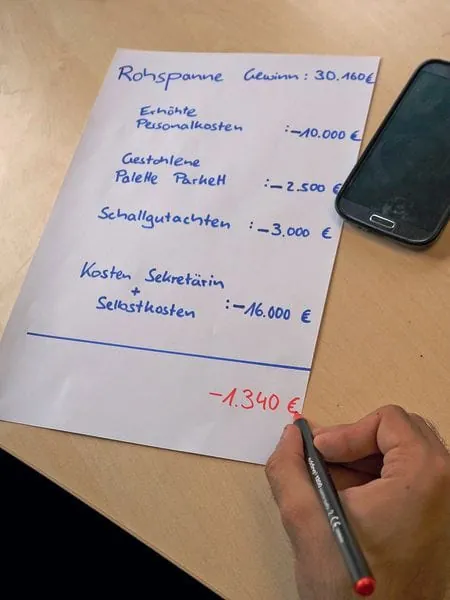 Rohspanne Gewinn: 30.160€
Erhöhte
Personalkosten :-10.000 €
Gestohlene
Palette Parkett :-2.500 €
Schallgutachten :-3.000 €
Kosten Sekretärin
+
Selbstkosten :-16.000 €
-1.340 €